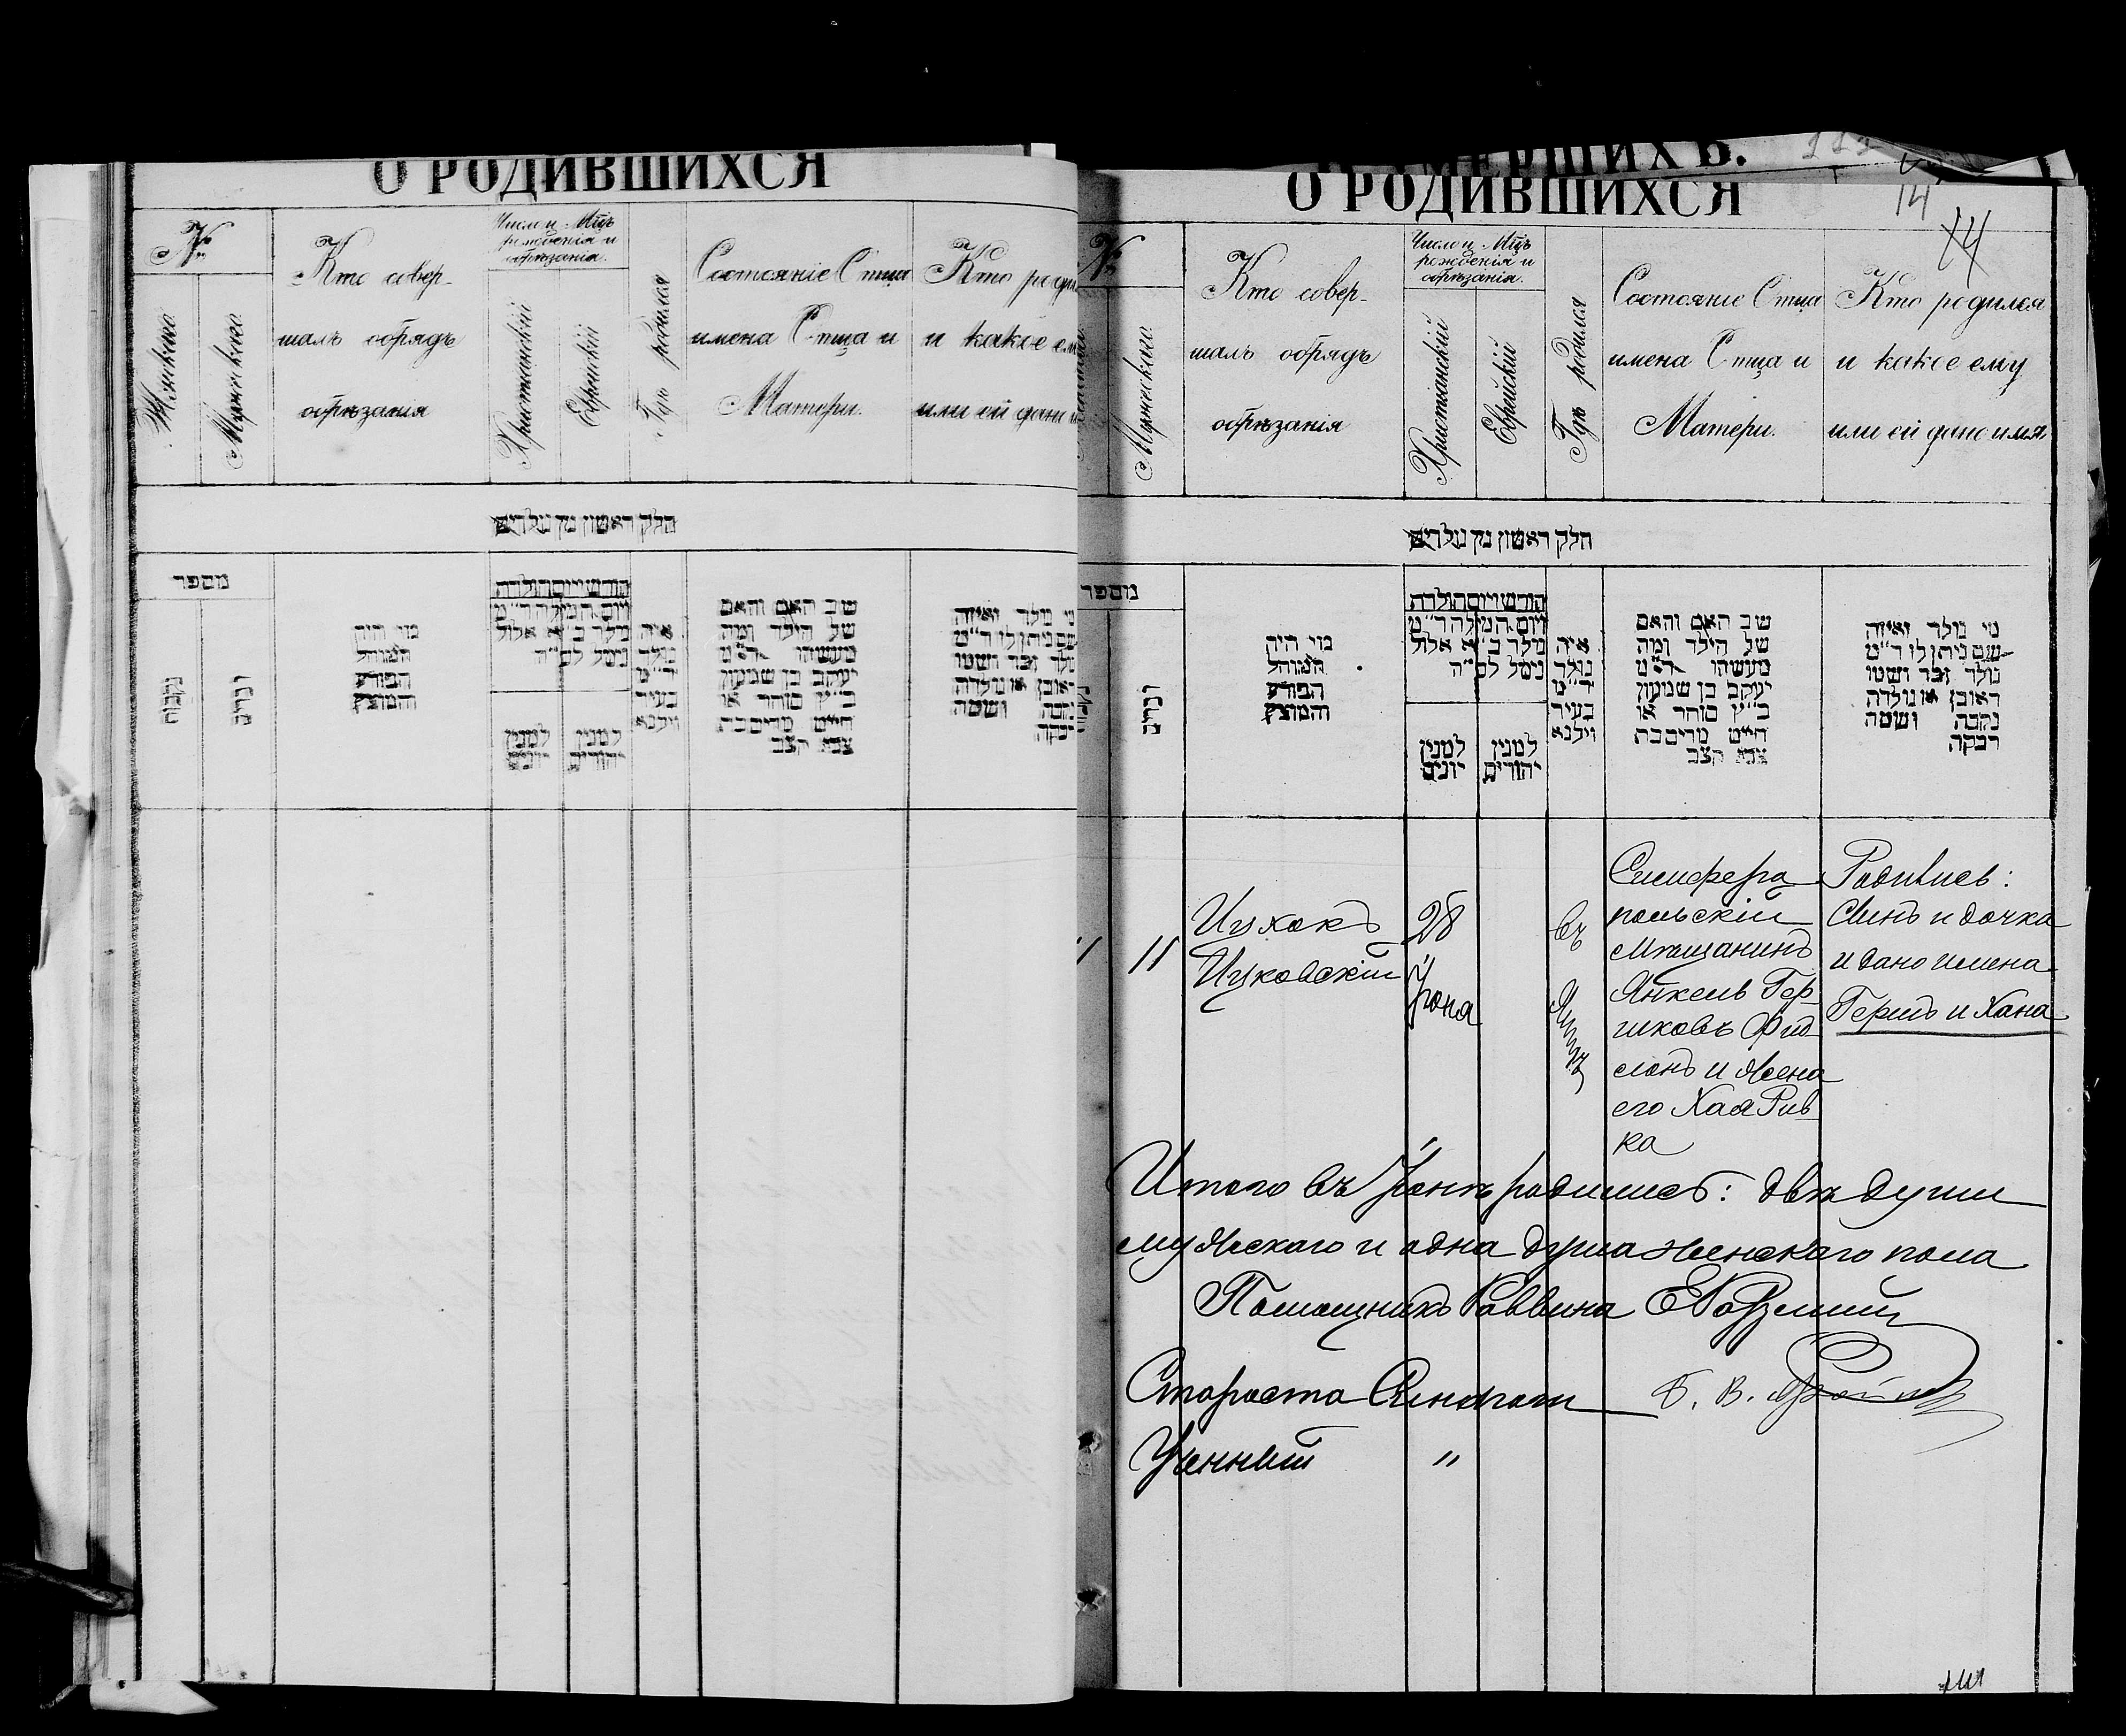 О РОДИВШИХСЯ
№
Женскаго
Мужескаго
Кто совер-
шалъ обрядъ
обрѣзанія
Число и Мцъ
рожденія и
обрѣзанія.
Христіанскій
Еврейскій
Гдѣ родился
Состояніе Отца
имена Отца и
Матери.
Кто роди
и какое ем
или ей дано и
חלק ראשון מן נולדים
מספר
נקבות
זכרים
מי היה
המוהל
הפורע
והמוצץ
חודש ויום הולדה
ויום המילה ד״מ
נולד כ״א אלול
נימל לס״ה
למנין
יונים
למנין
יהודים
איה
נולד
ד״מ
בעיר
ווילנא
שב האם והאם
של הילד ומה
מעשהו ד״מ
יעקב בן שמעון
כ״ץ סוחר או
חייט מרים בת
צבי קצב
מי נולד ואיזה
שם ניתן לו ד״מ
נולד זכר ושמו
ראובן או נולדה
נקבה ושמה
רבקה
О РОДИВШИХСЯ
14
№
Мужескаго
Кто совер-
шалъ обрядъ
обрѣзанія
Число и Мцъ
рожденія и
обрѣзанія.
Христіанскій
Еврейскій
Гдѣ родился
Состояніе Отца
имена Отца и
Матери.
Кто родился
и какое ему
или ей дано имя
חלק ראשון מן נולדים
מספר
זכרים
מי היה
המוהל
הפורע
והמוצץ
חודש ויום הולדה
ויום המילה ד״מ
נולד כ״א אלול
נימל לס״ה
למנין
יונים
למנין
יהודים
איה
נולד
ד״מ
בעיר
ווילנא
שב האם והאם
של הילד ומה
מעשהו ד״מ
יעקב בן שמעון
כ״ץ סוחר או
חייט מרים בת
צבי קצב
מי נולד ואיזה
שם ניתן לו ד״מ
נולד זכר ושמו
ראובן או נולדה
נקבה ושמה
רבקה
11
Ицхокъ
Ицковскій
28
Іюня
въ
Симферо
польскій
мѣщанинъ
Янкель Гер
шковъ Фид
слонъ и жена
его Хая Рив
ка
Родились:
сынъ и дочка
и дано имена
Гершъ и Хана
Итого въ Іюнѣ родились: двѣ души
мужескаго и одна душа женскаго пола
Помощникъ Раввина
Староста Синагоги
Ученный "